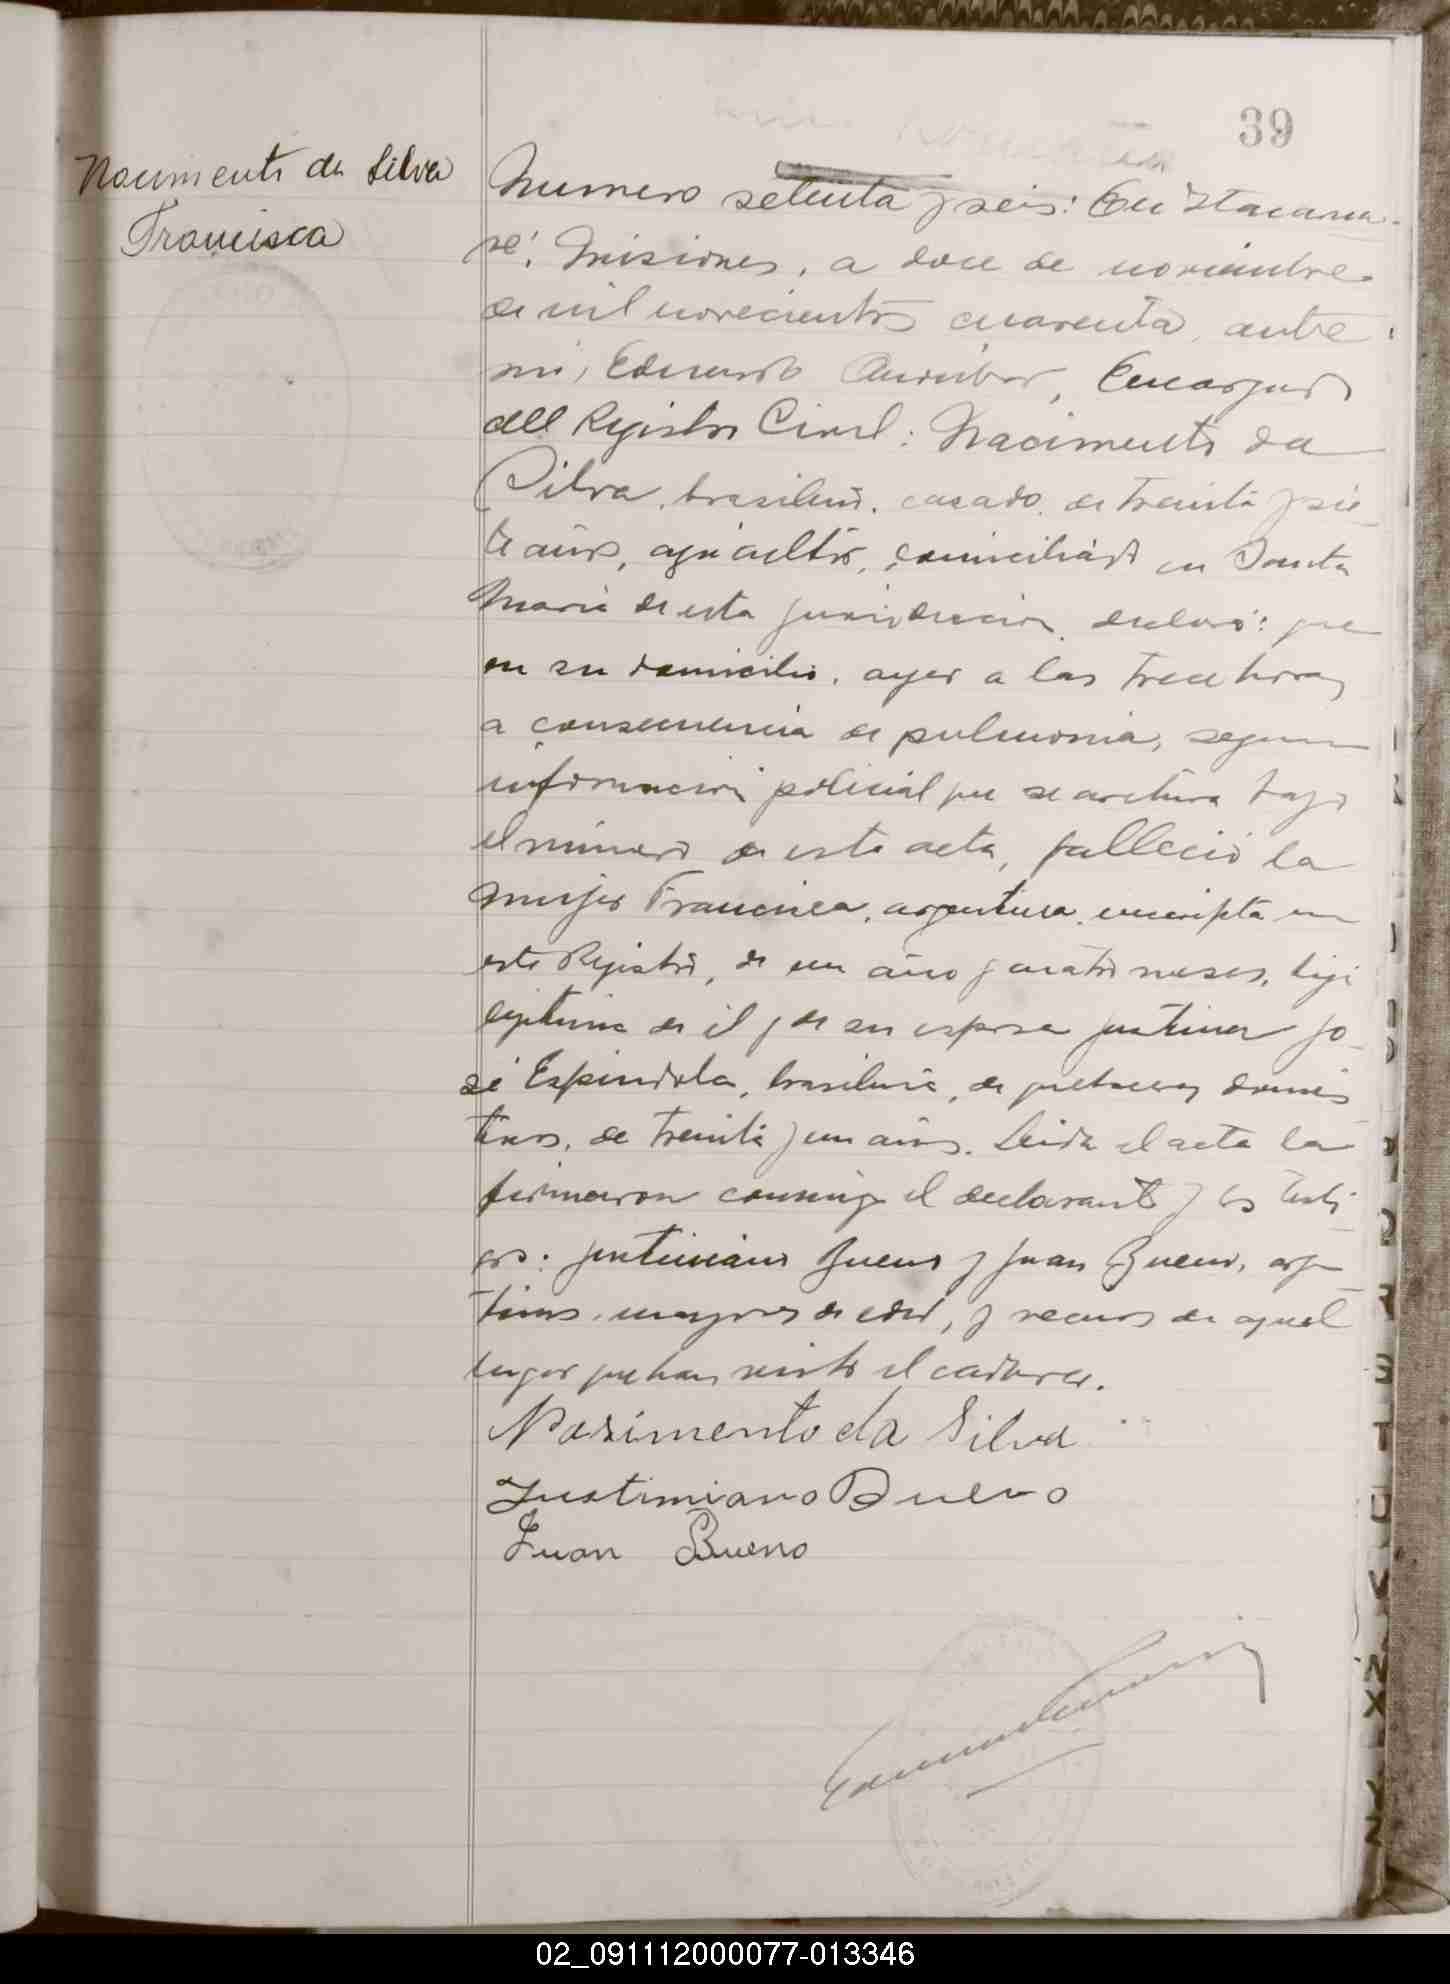 39
Nacimento da Silva
Francisca
Numero setenta y seis: En Itacarua-
ré, Misiones, a doce de noviembre
de mil novecientos cuarenta, ante
mi, Eduardo Encargado
del Registro Civil: Nacimento da
Silva, brasileño, casado, de treinta y sie-
te años, agricultor, domiciliado en Santa
Maria de esta jurisdiccion, declaró: que
en su domicilio, ayer a las trece horas
a consecuencia de pulmonia, segun
informacion policial que se archiva bajo
el número de esta acta, falleció la
mujer Francisca, argentina, inscripta en
este Registro, de un año y cuatro meses, hija
legitima de él y de su esposa Justina Jo-
sé Espindola, brasileña, de quehaceres domes
ticos, de treinta y un años. Leida el acta la
firmaron conmigo el declarante y los testi-
gos: Justiniano Bueno y Juan Bueno, argen-
tinos, mayores de edad, y vecinos de aquel
lugar que han visto el cadaver.
Nasimento da Silva
Justimiano Bueno
Juan Bueno
02_091112000077-013346